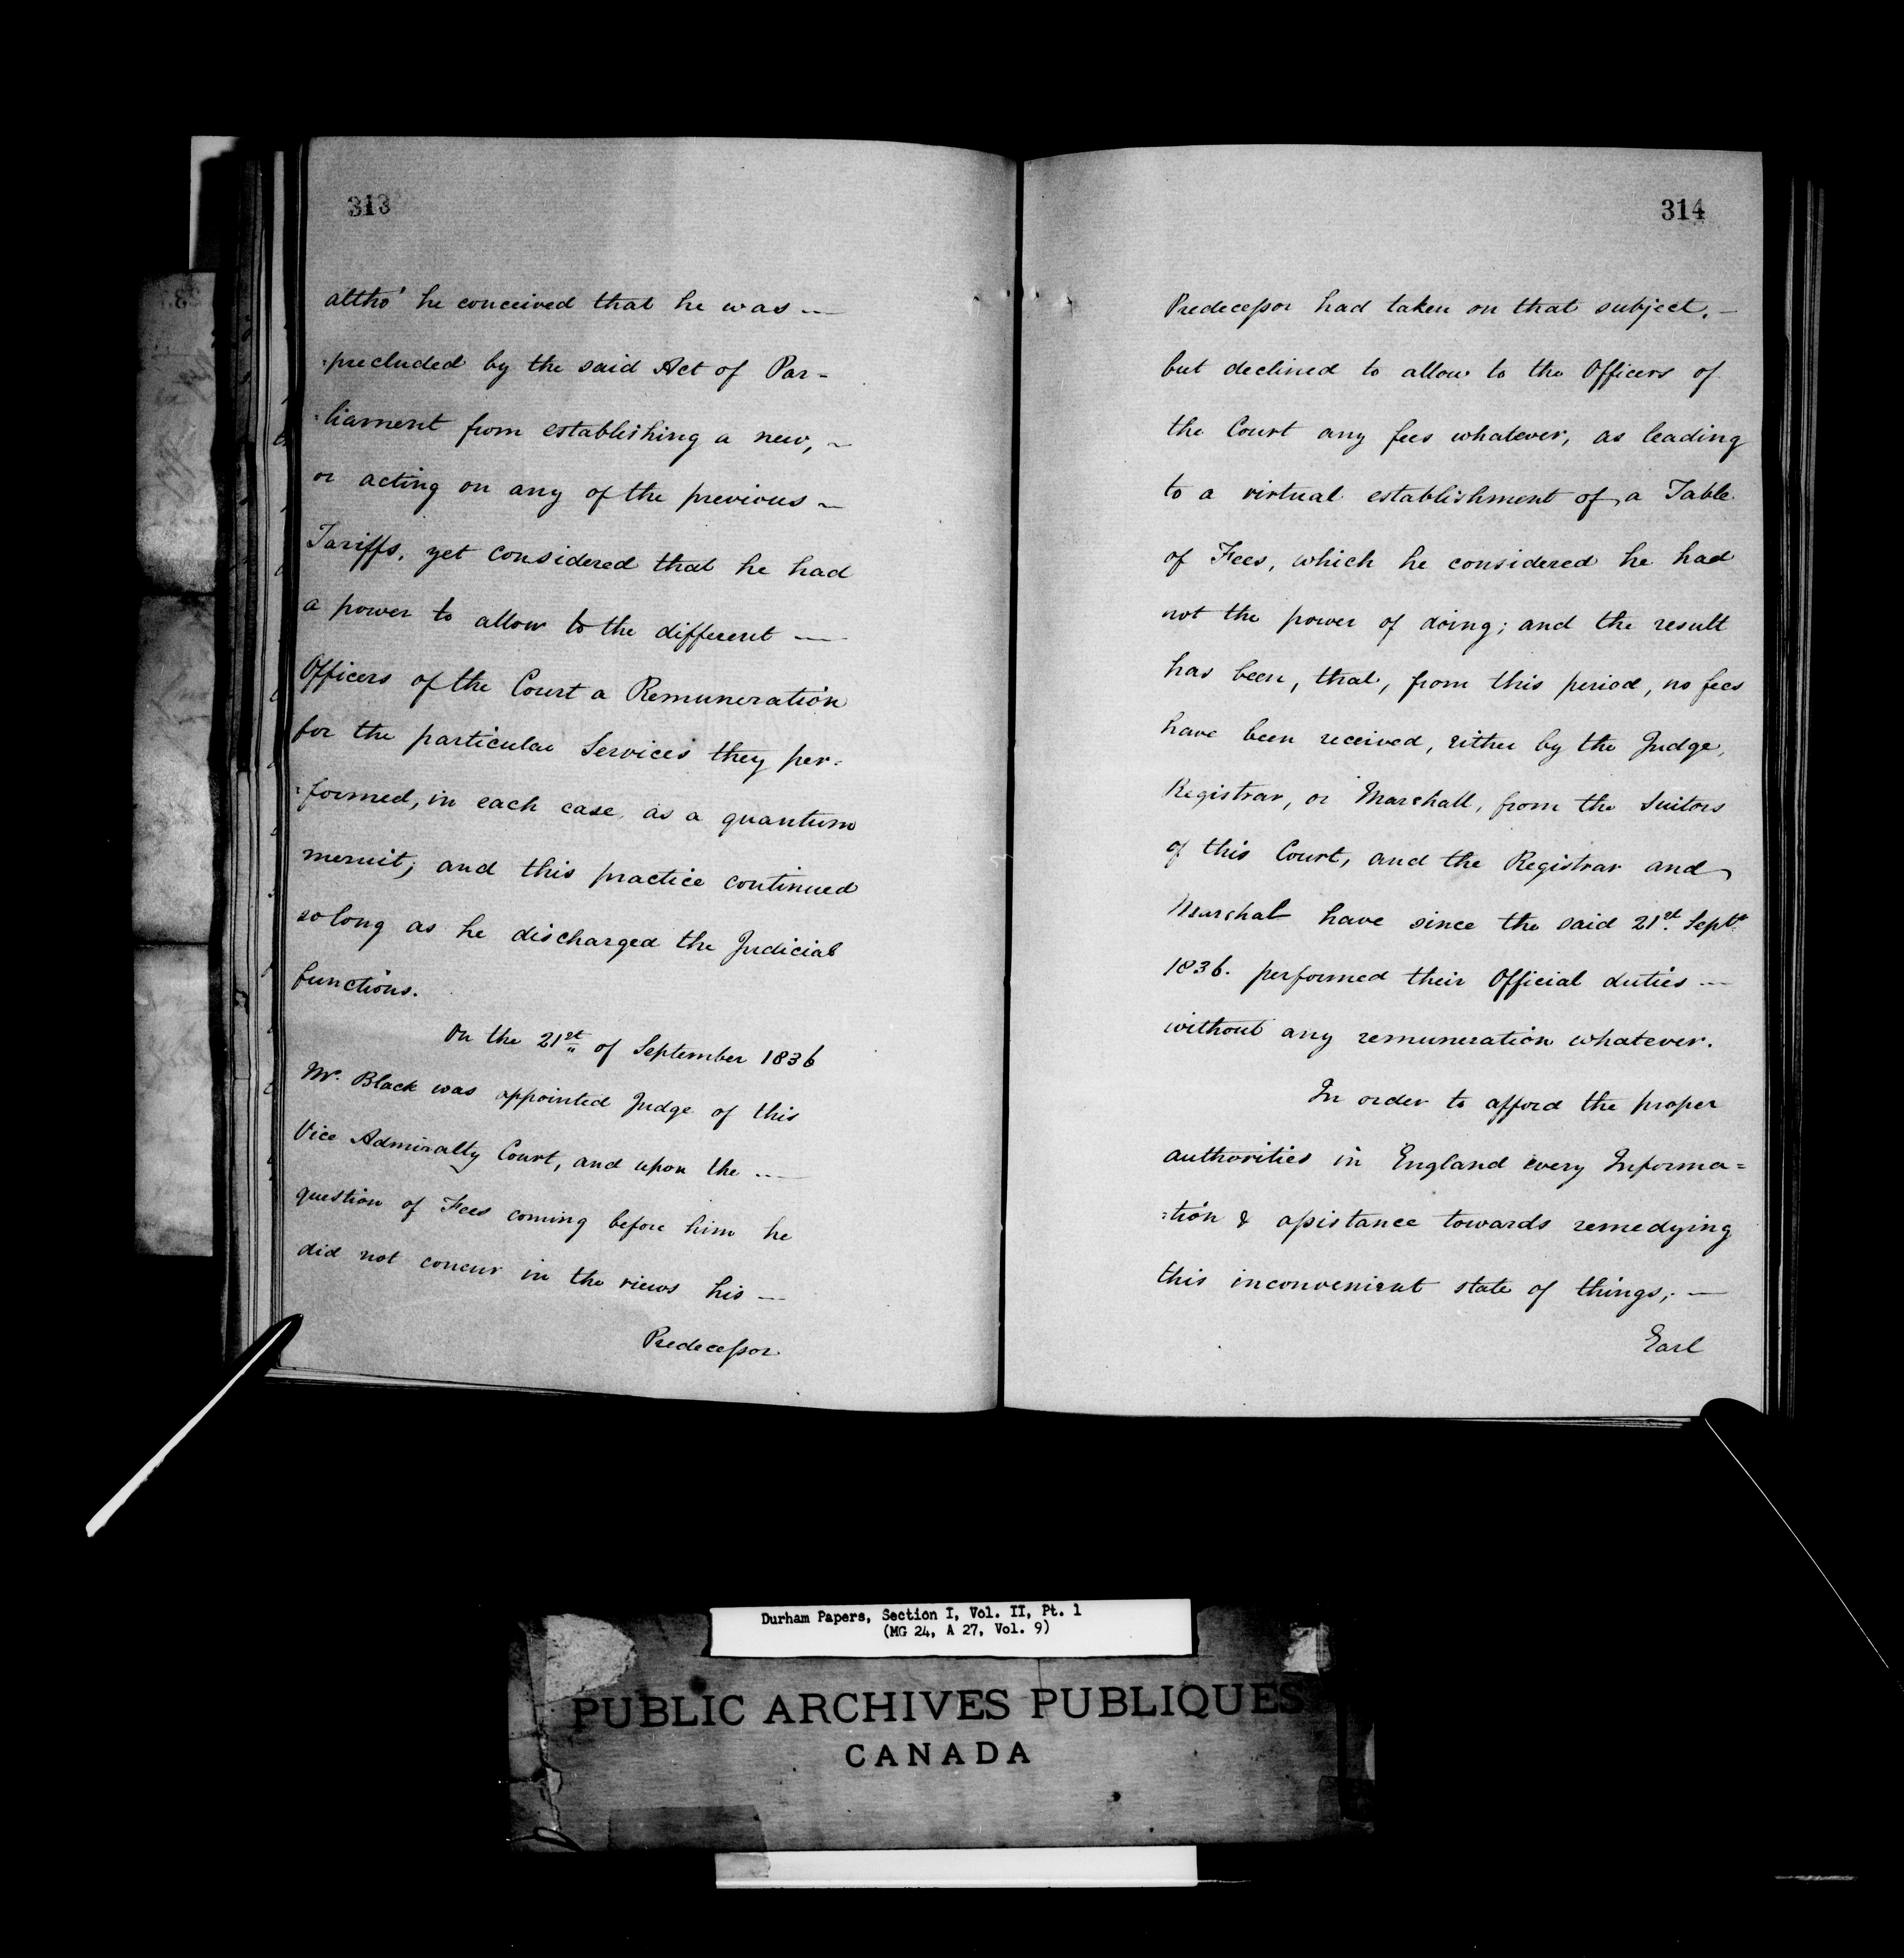 313
altho' he conceived that he was —
:precluded by the said Act of Par-
:liament from establishing a new, ~
or acting on any of the previous ~
Tariffs, yet considered that he had
a power to allow to the different —
Officers of the Court a Remuneration
for the particular Services they per-
:formed, in each case, as a quantum
meruit; and this practice continued
so long as he discharged the Judicial
functions.
On the 21st of September 1836
Mr. Black was appointed Judge of this
Vice Admiralty Court, and upon the —
question of Fees coming before him he
did not concur in the views his —
Predecessor
314
Predecessor had taken on that subject. —
but declined to allow to the Officers of
the Court any fees whatever, as leading
to a virtual establishment of a Table
of Fees, which he considered he had
not the power of doing; and the result
has been, that, from this period, no fees
have been received, either by the Judge,
Registrar, or Marshall, from the Suitors
of this Court, and the Registrar and
Marshal have since the said 21st. Septr.
1836. performed their Official duties —
without any remuneration whatever.
In order to afford the proper
authorities in England every Informa=
:tion & assistance towards remedying
this inconvenient state of things; —
Earl
Durham Papers, Section I, Vol. II, Pt. 1
(MG 24, A 27, Vol. 9)
PUBLIC ARCHIVES PUBLIQUES
CANADA